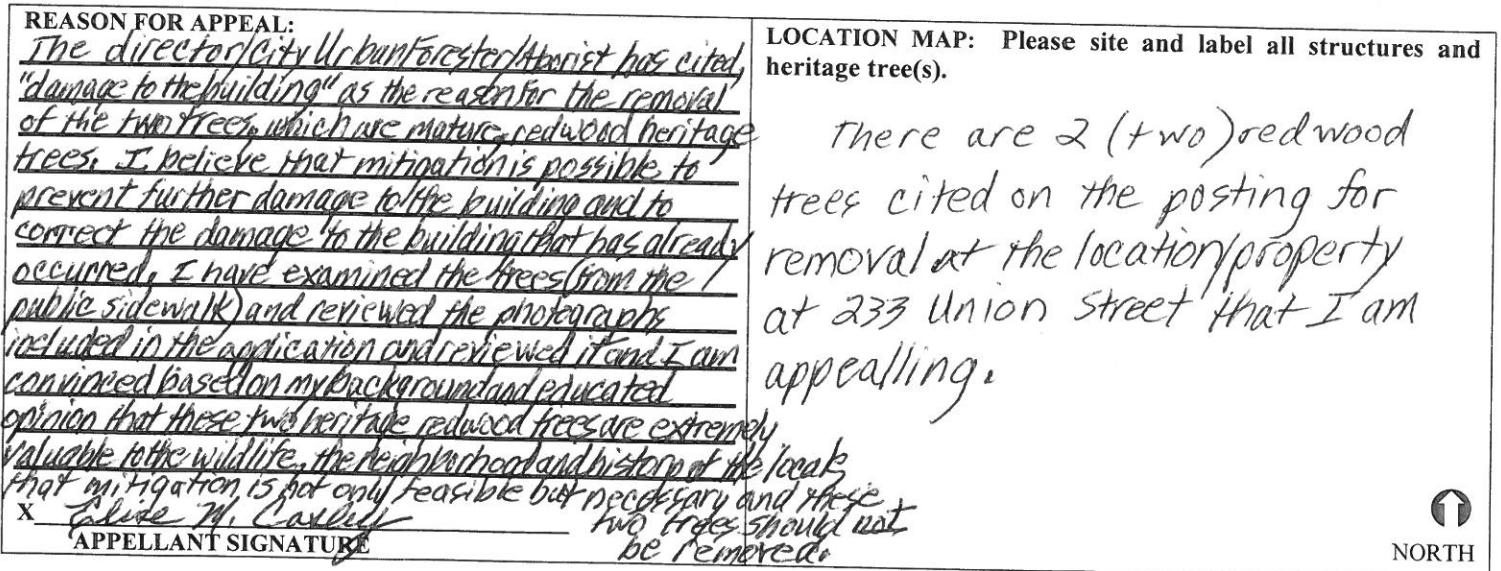 REASON FOR APPEAL:
The director/City Urban Forester/Aborist has cited,
"damage to the building" as the reason for the removal
of the two trees, which are mature, redwood heritage
trees. I believe that mitigation is possible to
prevent further damage to the building and to
correct the damage to the building that has already
occurred. I have examined the trees (from the
public sidewalk) and reviewed the photographs
included in the application and reviewed it and I am
convinced based on my background and educated
opinion that these two heritage redwood trees are extremely
valuable to the wildlife, the neighborhood and history of the locale,
that mitigation is not only feasible but necessary and these
two trees should not
be removed.
X
APPELLANT SIGNATURE
LOCATION MAP: Please site and label all structures and
heritage tree(s).
There are 2 (two) redwood
trees cited on the posting for
removal at the location/property
at 233 Union Street that I am
appealling.
NORTH